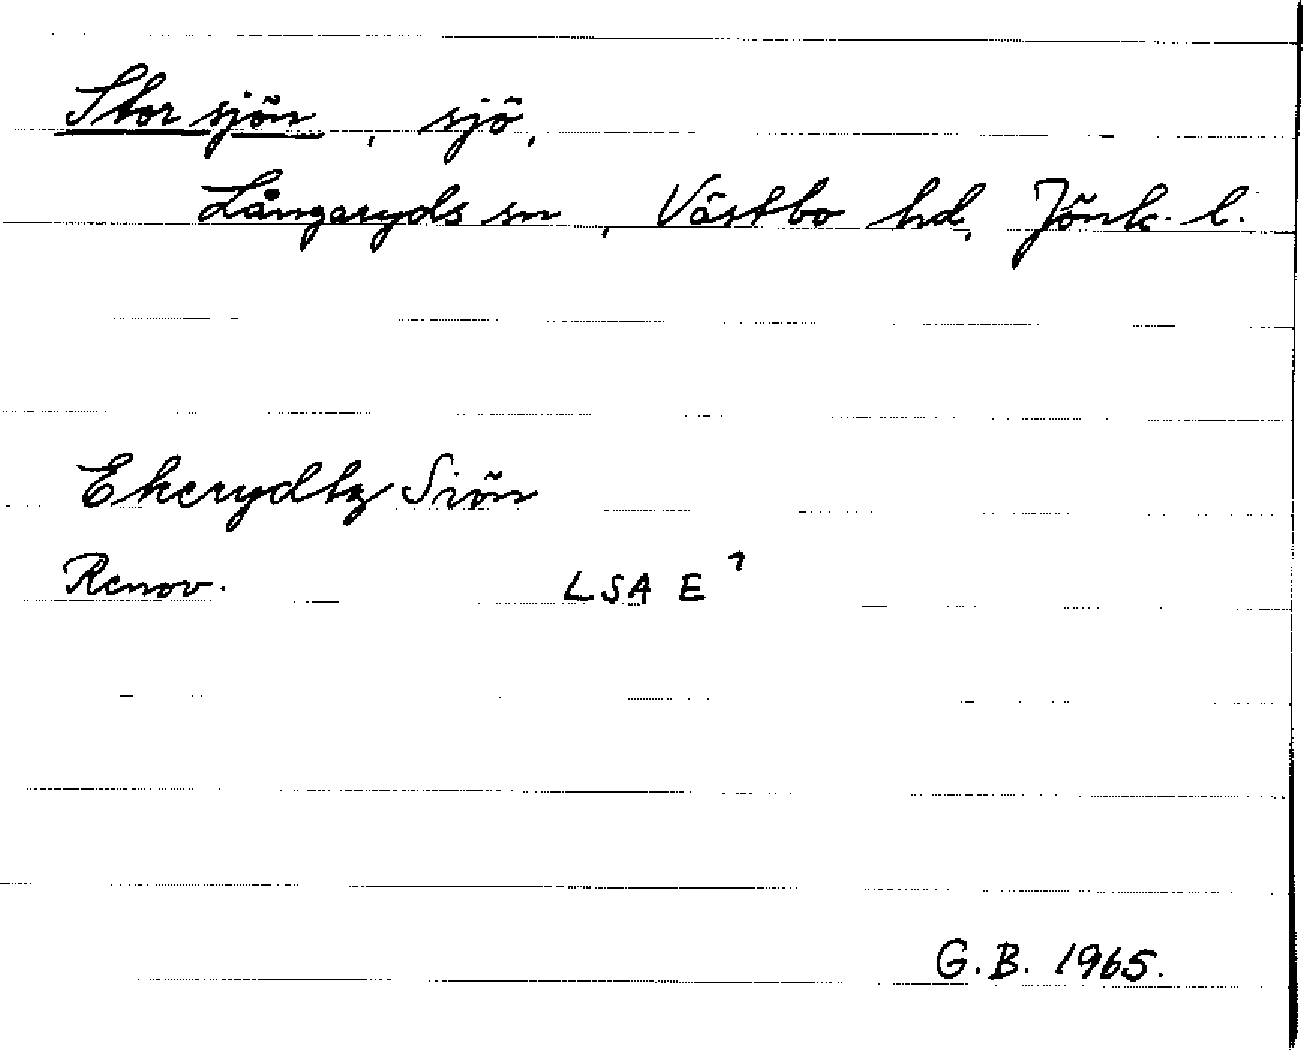 Stor sjön, sjö,
Långaryds sn, Västbo hd, Jönk. l.
Ekerydtz Siön
Renov. LSA E 1
G.B. 1965.